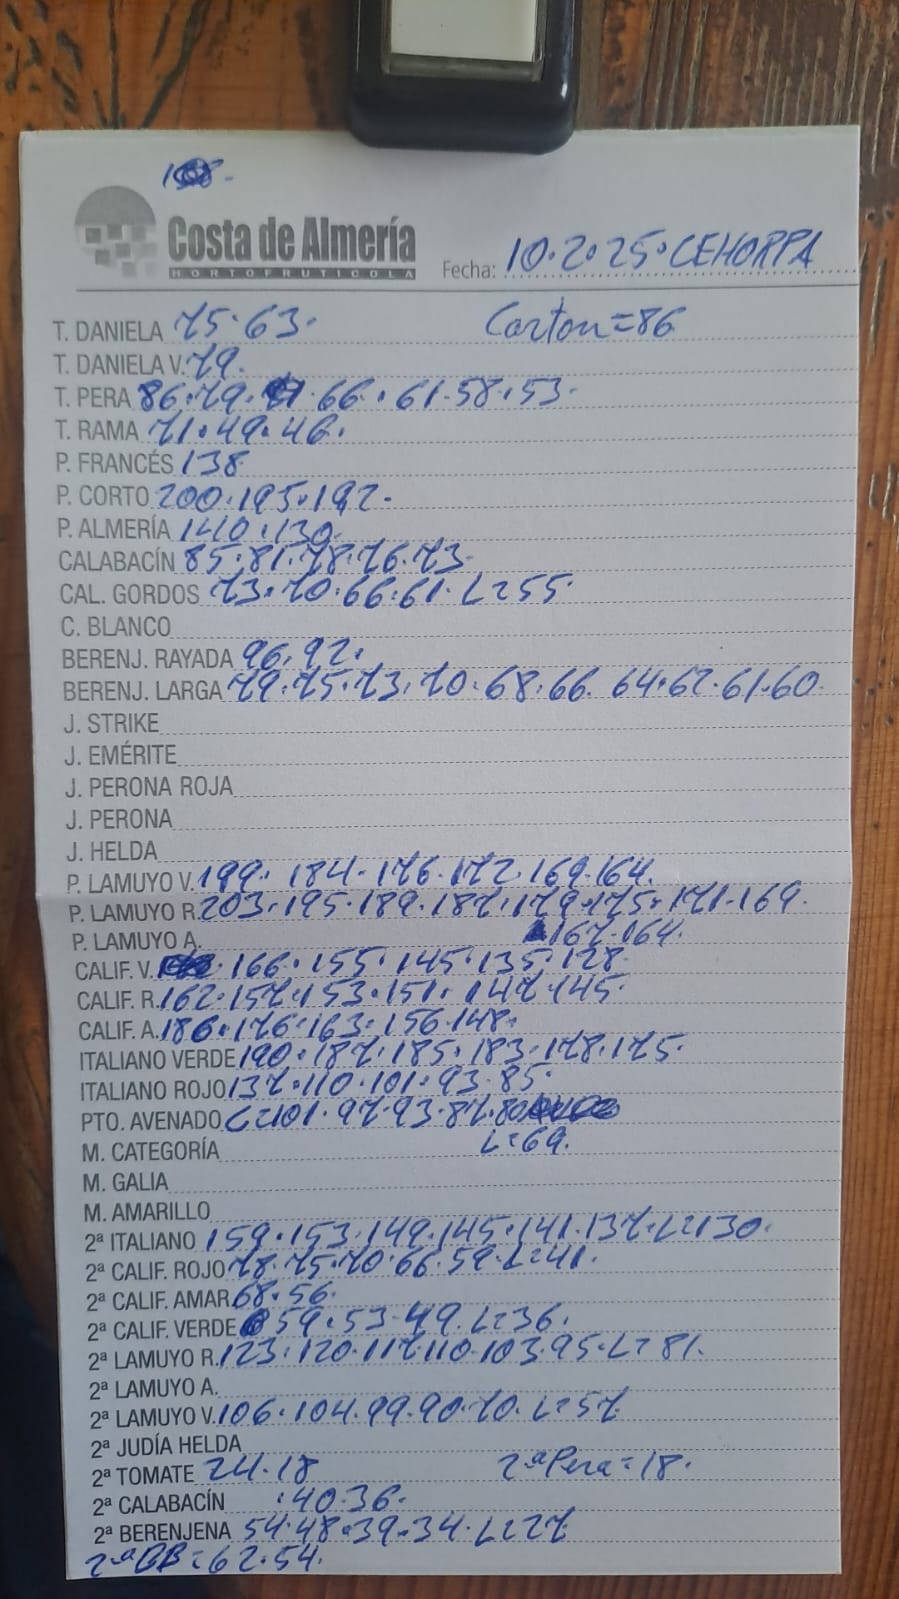 Costa de Almería
HORTOFRUTICOLA
Fecha: 10.2.25.CEHORPA
T. DANIELA 75.63. Carton=86
T. DANIELA V. 79.
T. PERA 86.79. .66.61.58.53.
T. RAMA 71.49.46.
P. FRANCÉS 138
P. CORTO 200.195.192.
P. ALMERÍA 140.130.
CALABACÍN 85.81.78.76.73.
CAL. GORDOS 73.70.66.61.L=55.
C. BLANCO
BERENJ. RAYADA 96.92.
BERENJ. LARGA 79.75.73.70.68.66.64.62.61.60.
J. STRIKE
J. EMÉRITE
J. PERONA ROJA
J. PERONA
J. HELDA
P. LAMUYO V. 199. 184.176.172.169.164.
P. LAMUYO R. 203.195.189.187.179.175.171.169.
P. LAMUYO A. 167.164.
CALIF. V. .166.155.145.135.128
CALIF. R. 162.157.153.151.147.145.
CALIF. A. 186.176.163.156.148.
ITALIANO VERDE 190.187.185.183.178.175.
ITALIANO ROJO 137.110.101.93.85.
PTO. AVENADO C=101.97.93.87.80
M. CATEGORÍA L=69.
M. GALIA
M. AMARILLO
2ª ITALIANO 159.153.149.145.141.137.L=130.
2ª CALIF. ROJO 78.75.70.66.59.L=41.
2ª CALIF. AMAR. 68.56.
2ª CALIF. VERDE 59.53.49.L=36.
2ª LAMUYO R. 123.120.117.110.103.95.L=81.
2ª LAMUYO A.
2ª LAMUYO V. 106.104.99.90.70.L=57
2ª JUDÍA HELDA
2ª TOMATE 24.18 2ªPera=18.
2ª CALABACÍN .40.36.
2ª BERENJENA 54.48.39.34.L=27
2ªBB=62.54.